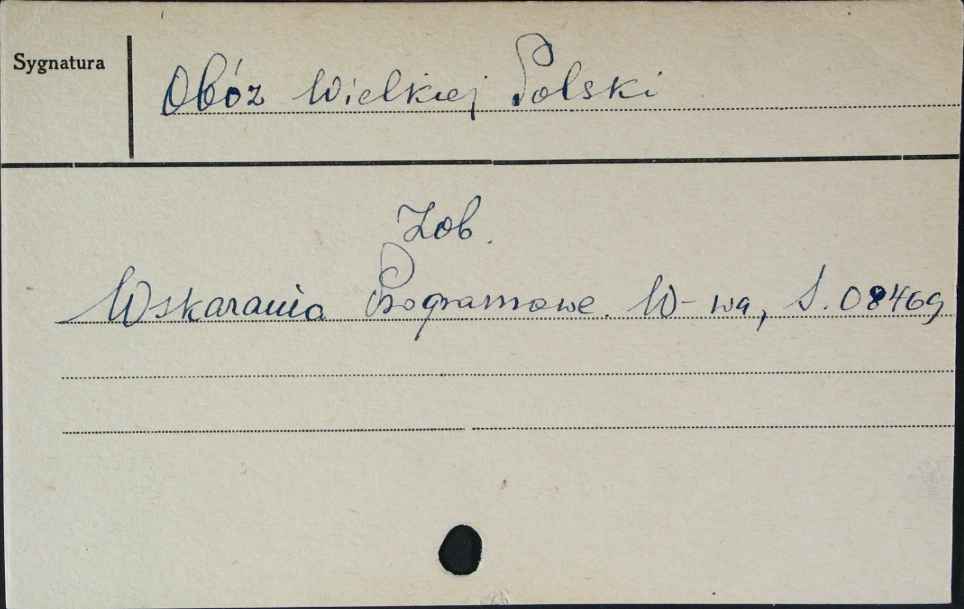 Sygnatura
Obóz Wielkiej Polski
Zob.
Wskazania Programowe. W-wa, S. 08469